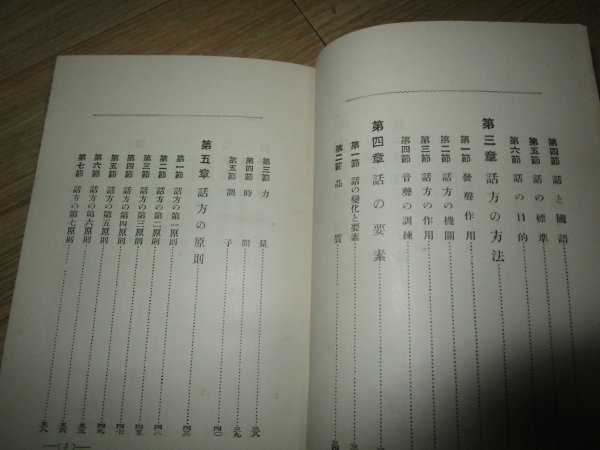 第四節 話と國語
第五節 話の標準
第六節 話の目的
第三章 話方の方法
第一節 發聲作用
第二節 話方の機關
第三節 話方の作用
第四節 音聲の訓練
第四章 話の要素
第一節 話の變化と要素
第二節 品質
第三節 力量 三八
第四節 時間 三九
第五節 調子 四〇
第五章 話方の原則
第一節 話方の第一原則 四三
第二節 話方の第二原則 四三
第三節 話方の第三原則 四五
第四節 話方の第四原則 四七
第五節 話方の第五原則 四九
第六節 話方の第六原則 五六
第七節 話方の第七原則 五八
(3)